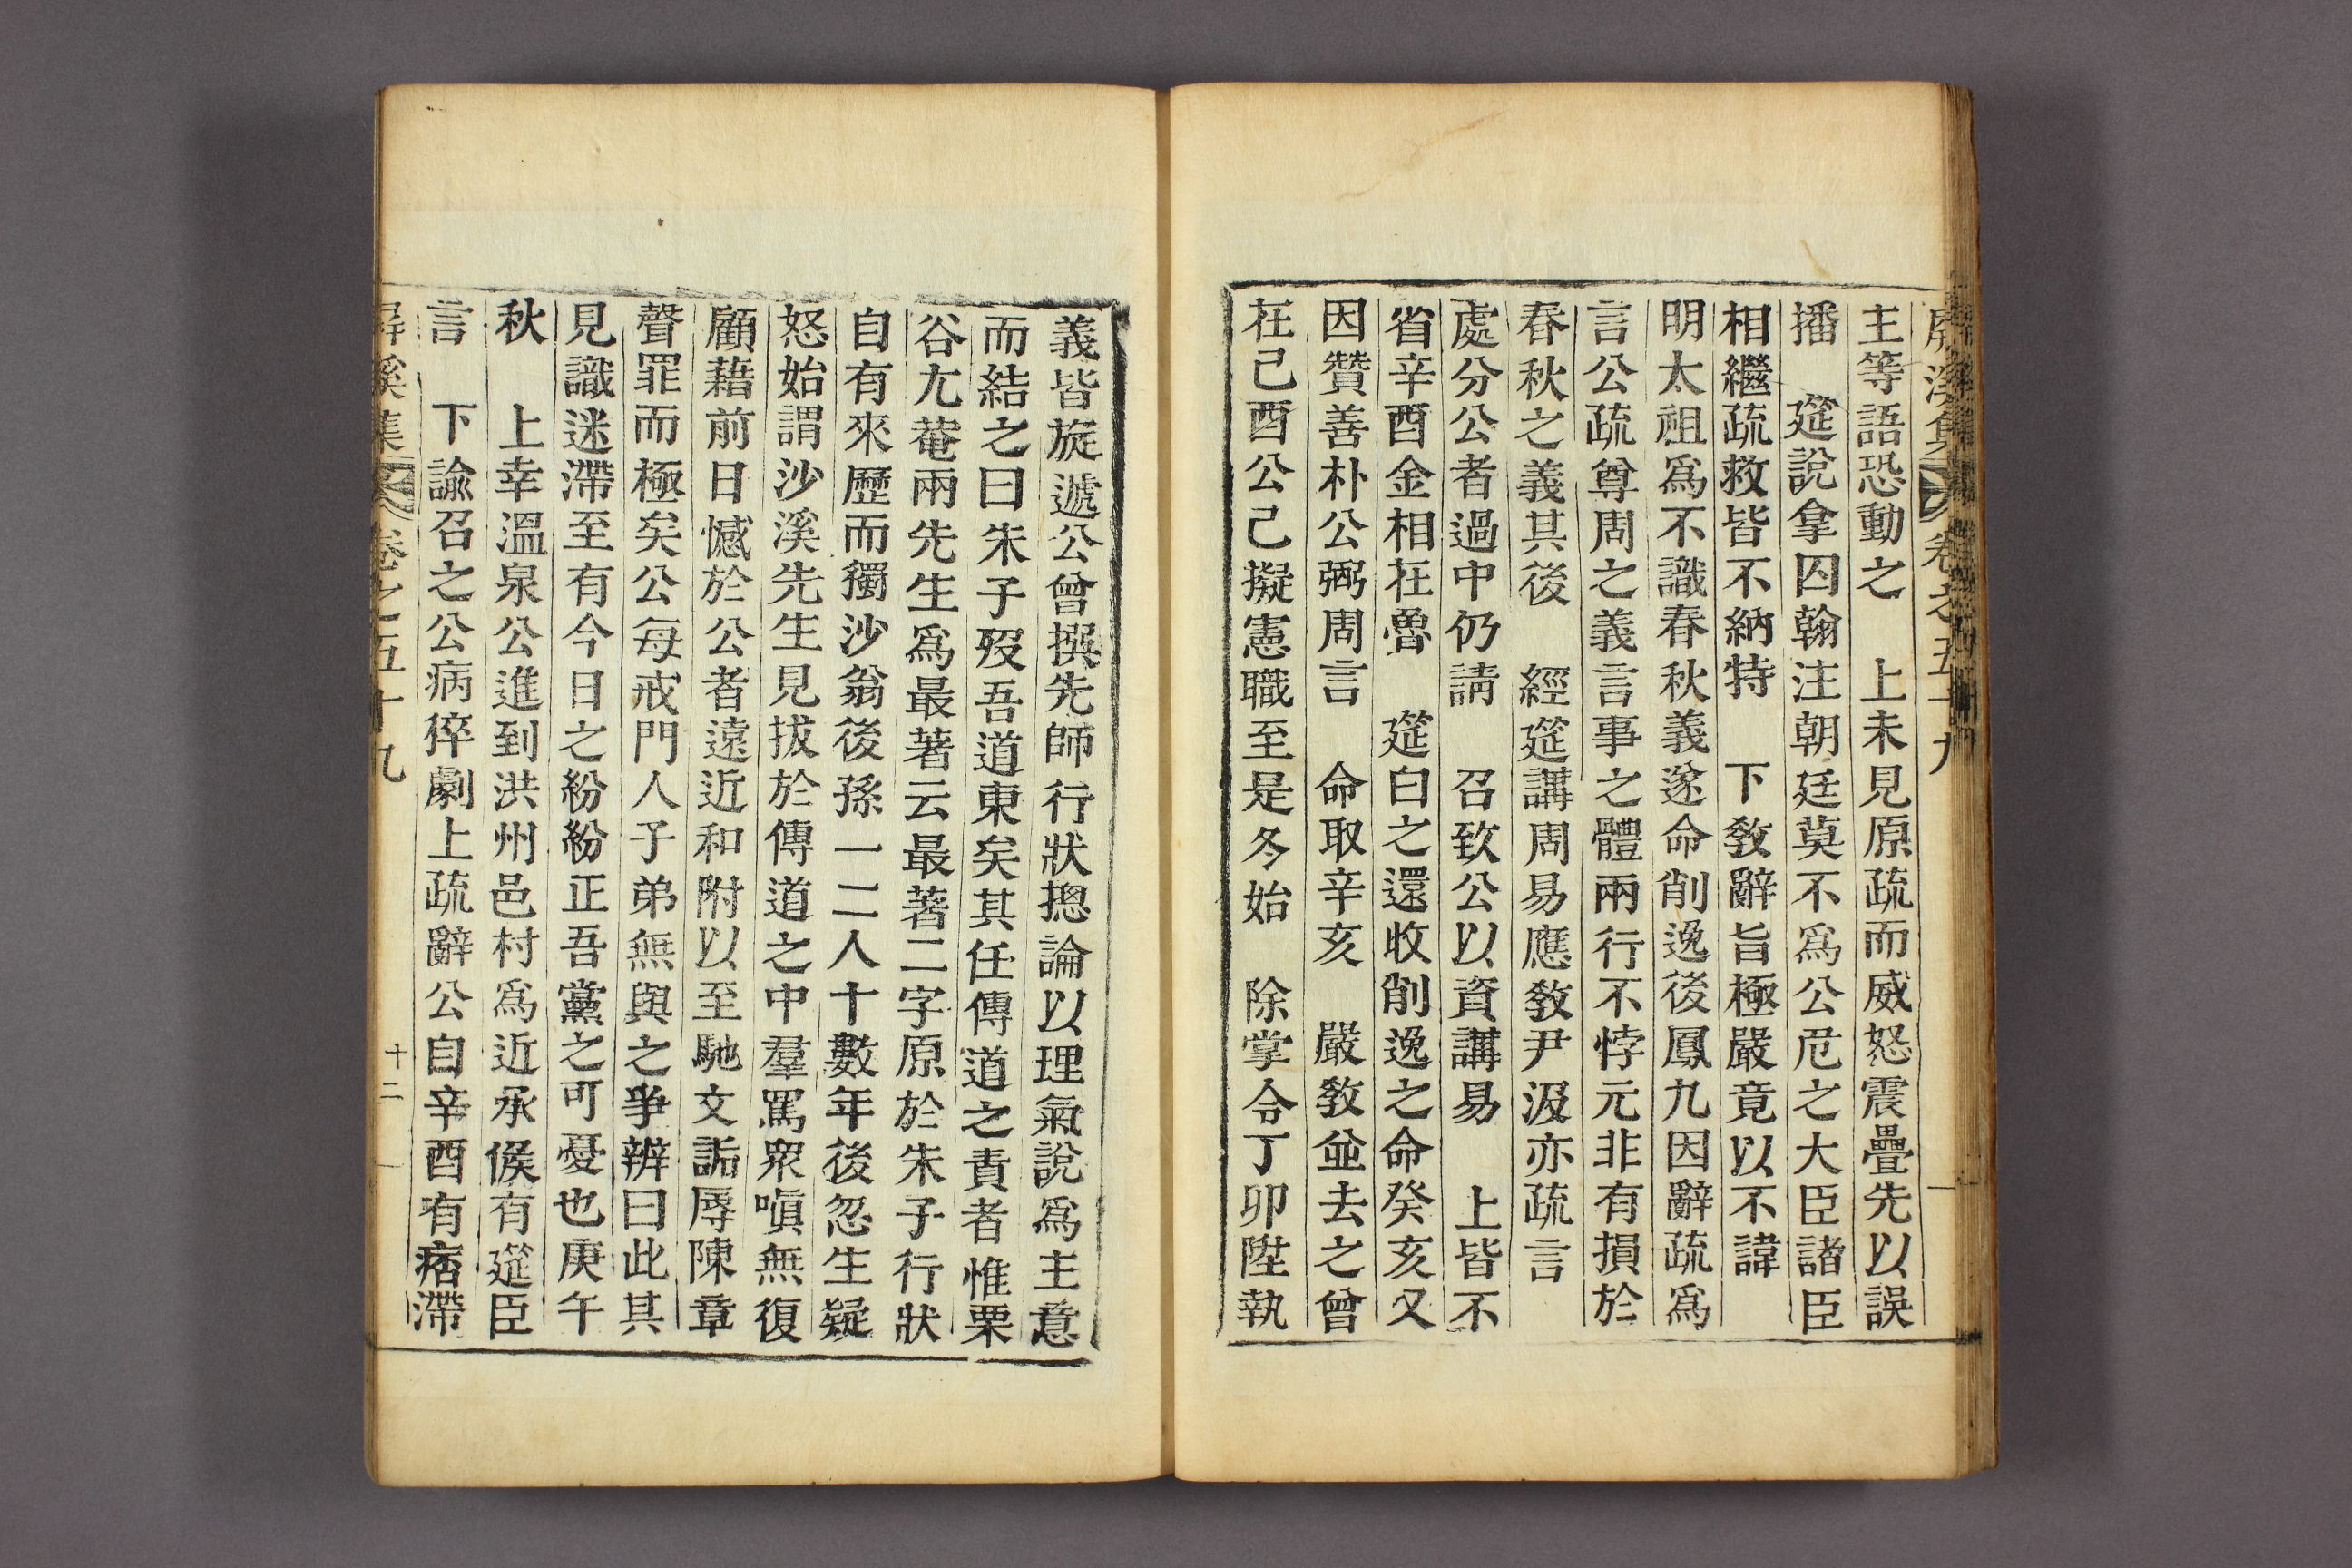 屏溪集 卷之五十九
主等語恐動之 上未見原疏而威怒震疊先以誤
播 筵說拿囚翰注朝廷莫不爲公危之大臣諸臣
相繼疏救皆不納特 下敎辭旨極嚴竟以不諱
明太祖爲不識春秋義遂命削逸後鳳九因辭疏爲
言公疏尊周之義言事之體兩行不悖元非有損於
春秋之義其後 經筵講周易應敎尹汲亦疏言
處分公者過中仍請 召致公以資講易 上皆不
省辛酉金相在魯 筵白之還收削逸之命癸亥又
因贊善朴公弼周言 命取辛亥 嚴敎並去之曾
在己酉公已擬憲職至是冬始 除掌令丁卯陞執
義皆旋遞公曾撰先師行狀摠論以理氣說爲主意
而結之曰朱子歿吾道東矣其任傳道之責者惟栗
谷尤菴兩先生爲最著云最著二字原於朱子行狀
自有來歷而獨沙翁後孫一二人十數年後忽生疑
怒始謂沙溪先生見拔於傳道之中羣罵衆嗔無復
顧藉前日憾於公者遠近和附以至馳文詬辱陳章
聲罪而極矣公每戒門人子弟無與之爭辨曰此其
見識迷滯至有今日之紛紛正吾黨之可憂也庚午
秋 上幸溫泉公進到洪州邑村爲近承候有筵臣
言 下諭召之公病猝劇上疏辭公自辛酉有痞滯
屏溪集 卷之五十九 十二